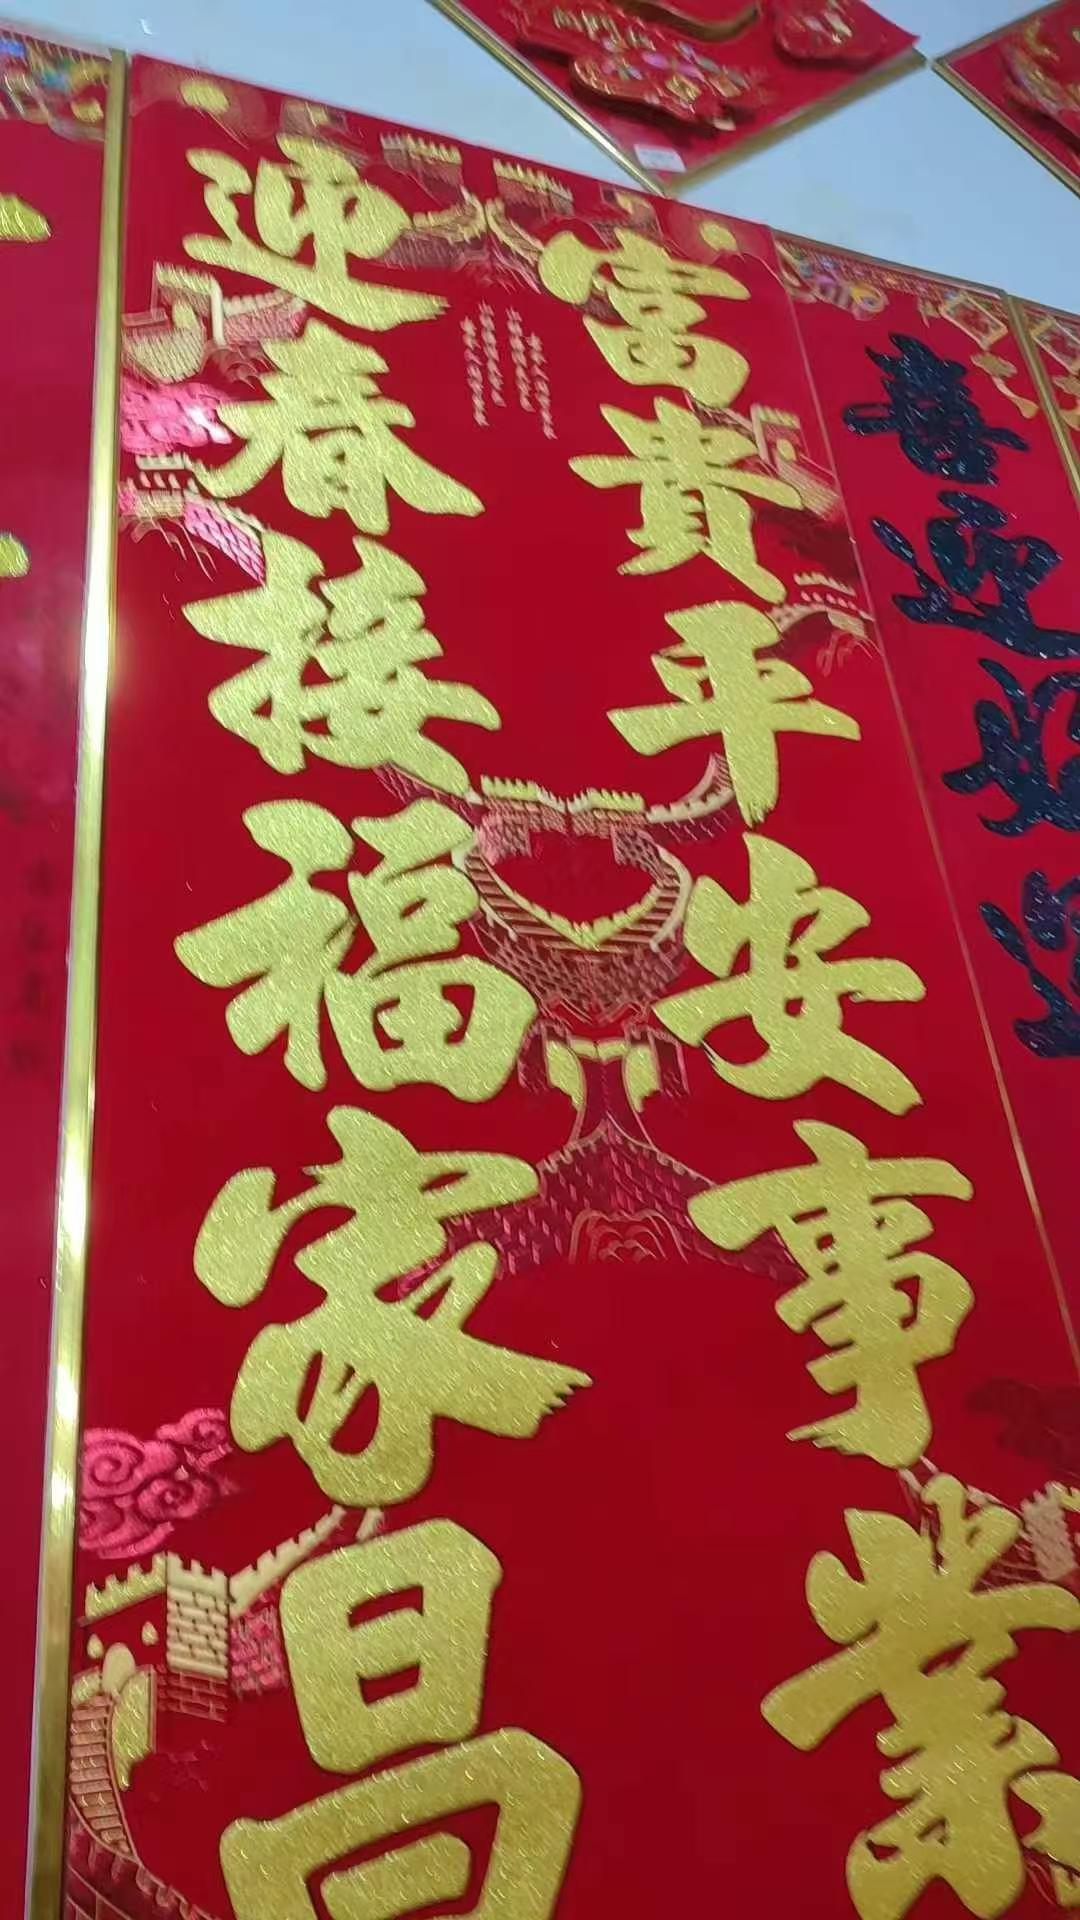 富貴平安事業
迎春接福家昌
喜迎好